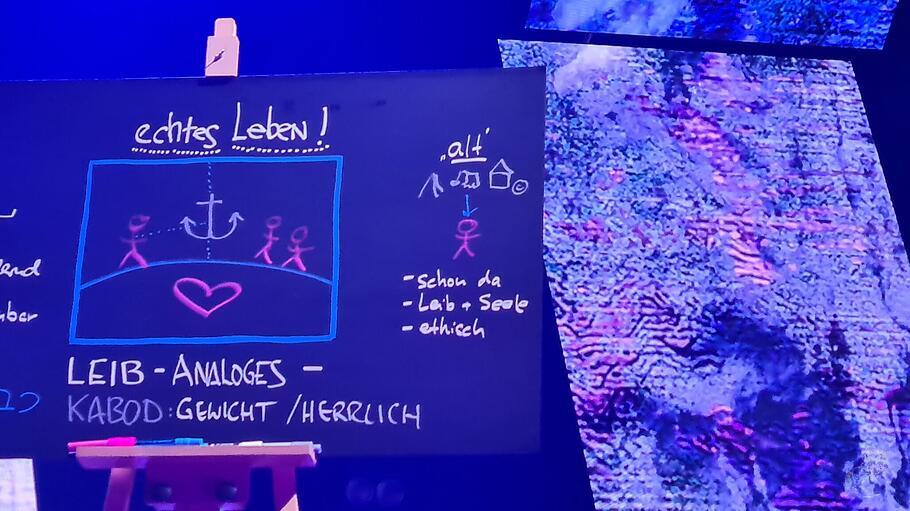 echtes Leben!
"alt"
©
- schon da
- Leib + Seele
- ethisch
LEIB - ANALOGES -
KABOD: GEWICHT / HERRLICH